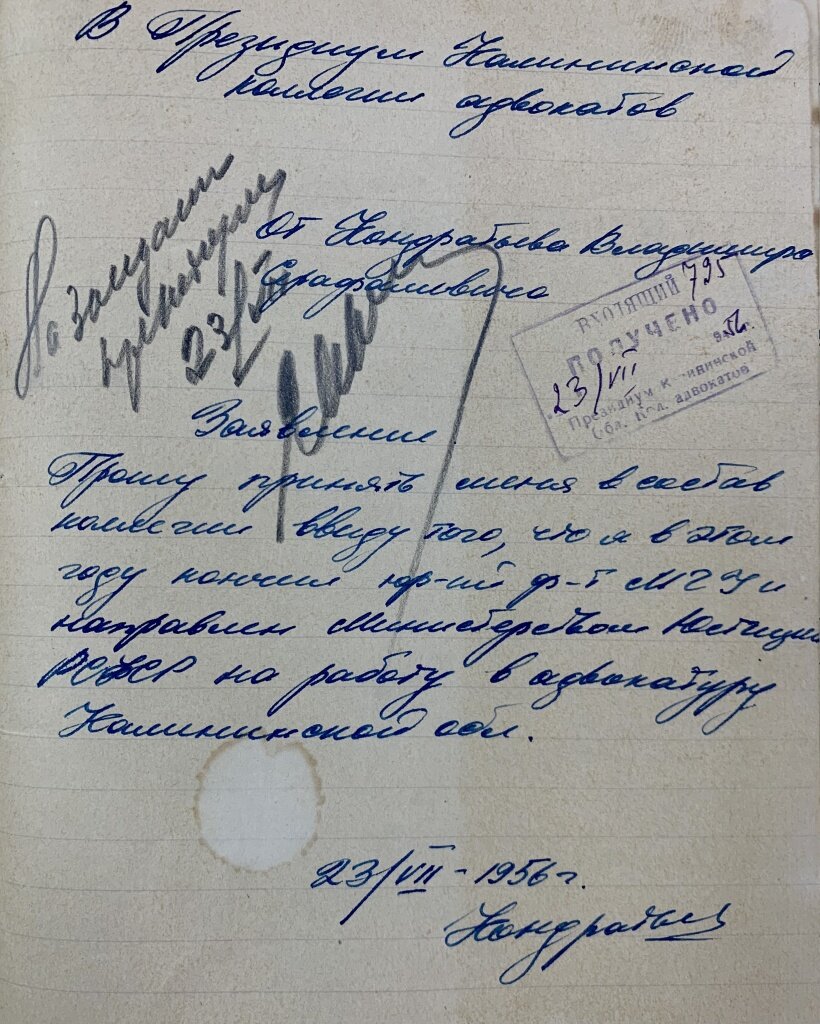 В Президиум Калининской
коллегии адвокатов
На заседание
президиума
23/VII
От Кондратьева Владимира
Серафимовича
ВХОДЯЩИЙ 795
ПОЛУЧЕНО
23/VII 1956г.
Президиум Калининской
Обл. Кол. адвокатов
Заявление
Прошу принять меня в состав
коллегии ввиду того, что я в этом
году кончил юр-ий ф-т МГУ и
направлен Министерством Юстиции
РСФСР на работу в адвокатуру
Калининской обл.
23/VII - 1956 г.
Кондратьев